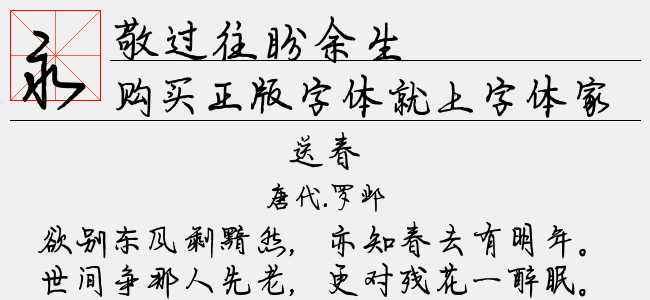 永
敬过往盼余生
购买正版字体就上字体家
送春
唐代.罗邺
欲别东风剩黯然，亦知春去有明年。
世间争那人先老，更对残花一醉眠。